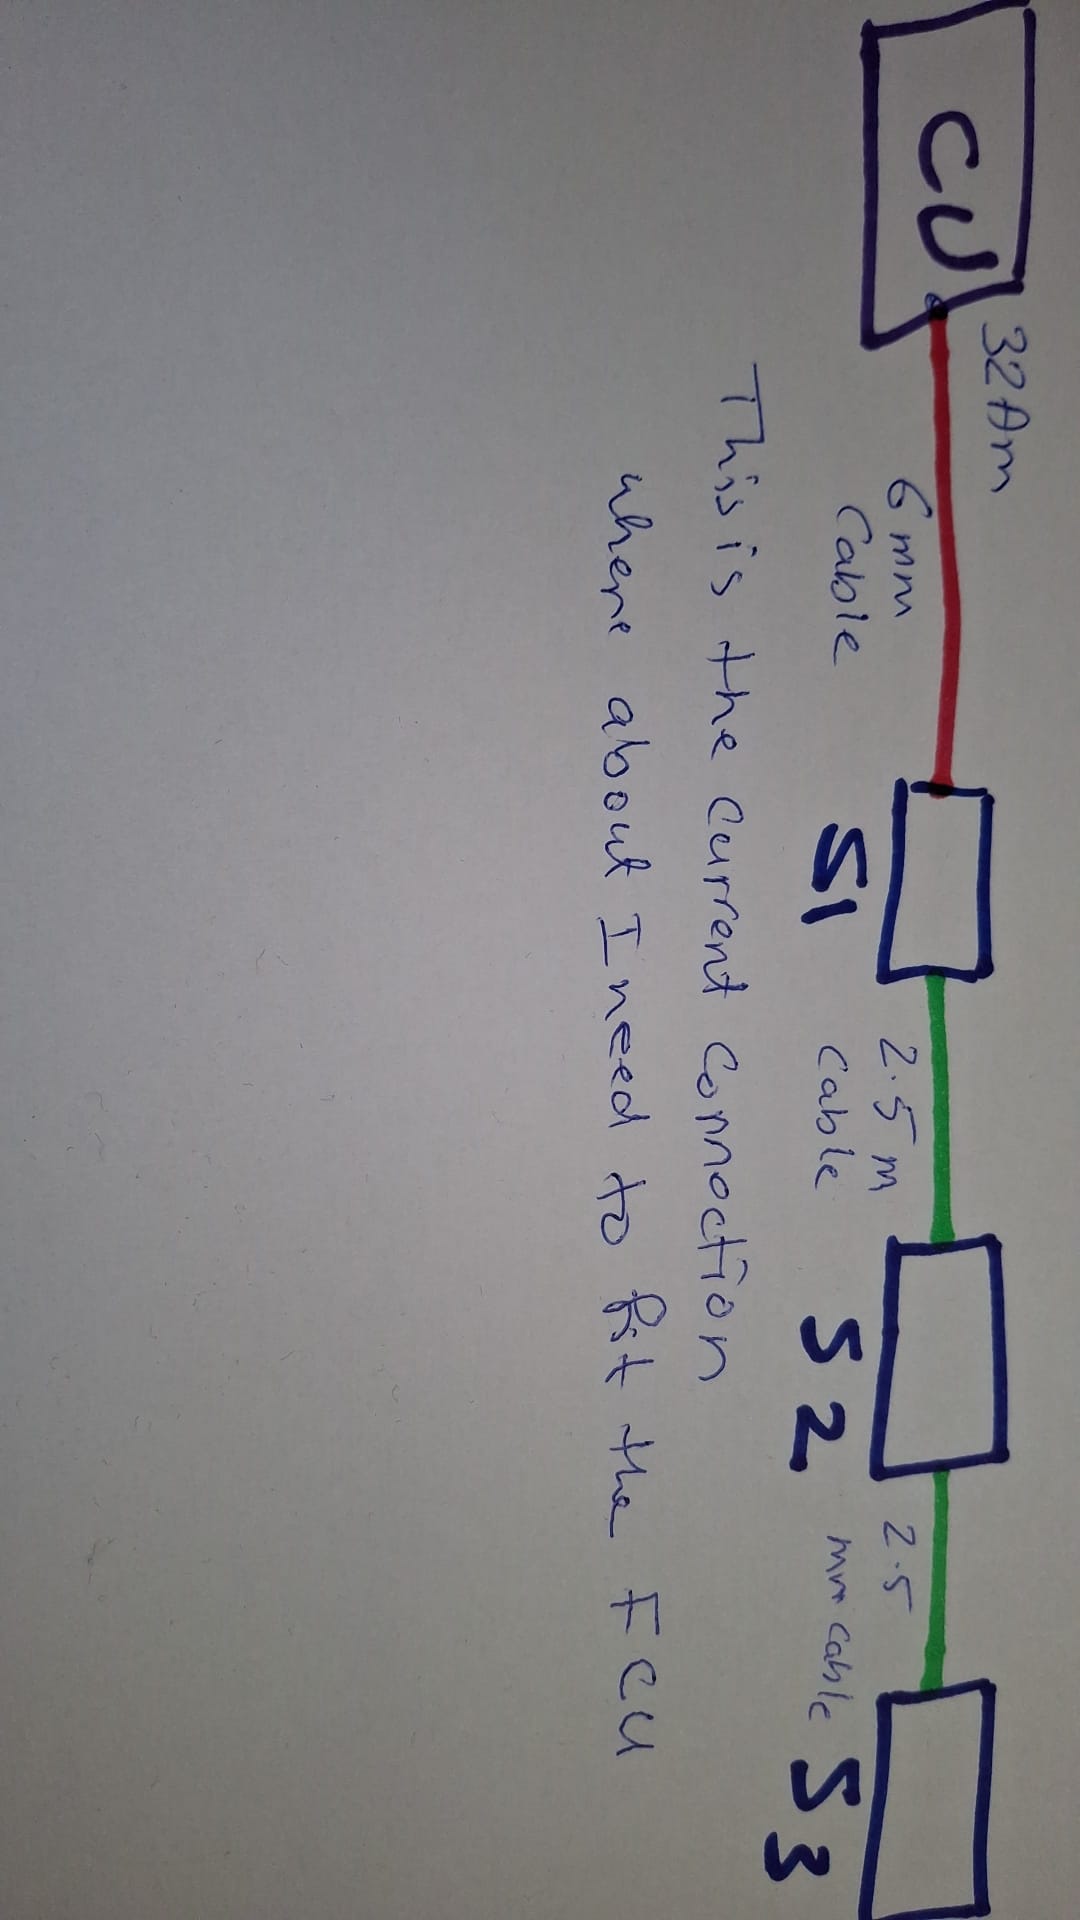 CU
32Am
6mm
Cable
S1
2.5m
Cable
S2
2.5
mm cable
S3
This is the current connoction
where about I need to fit the FCU